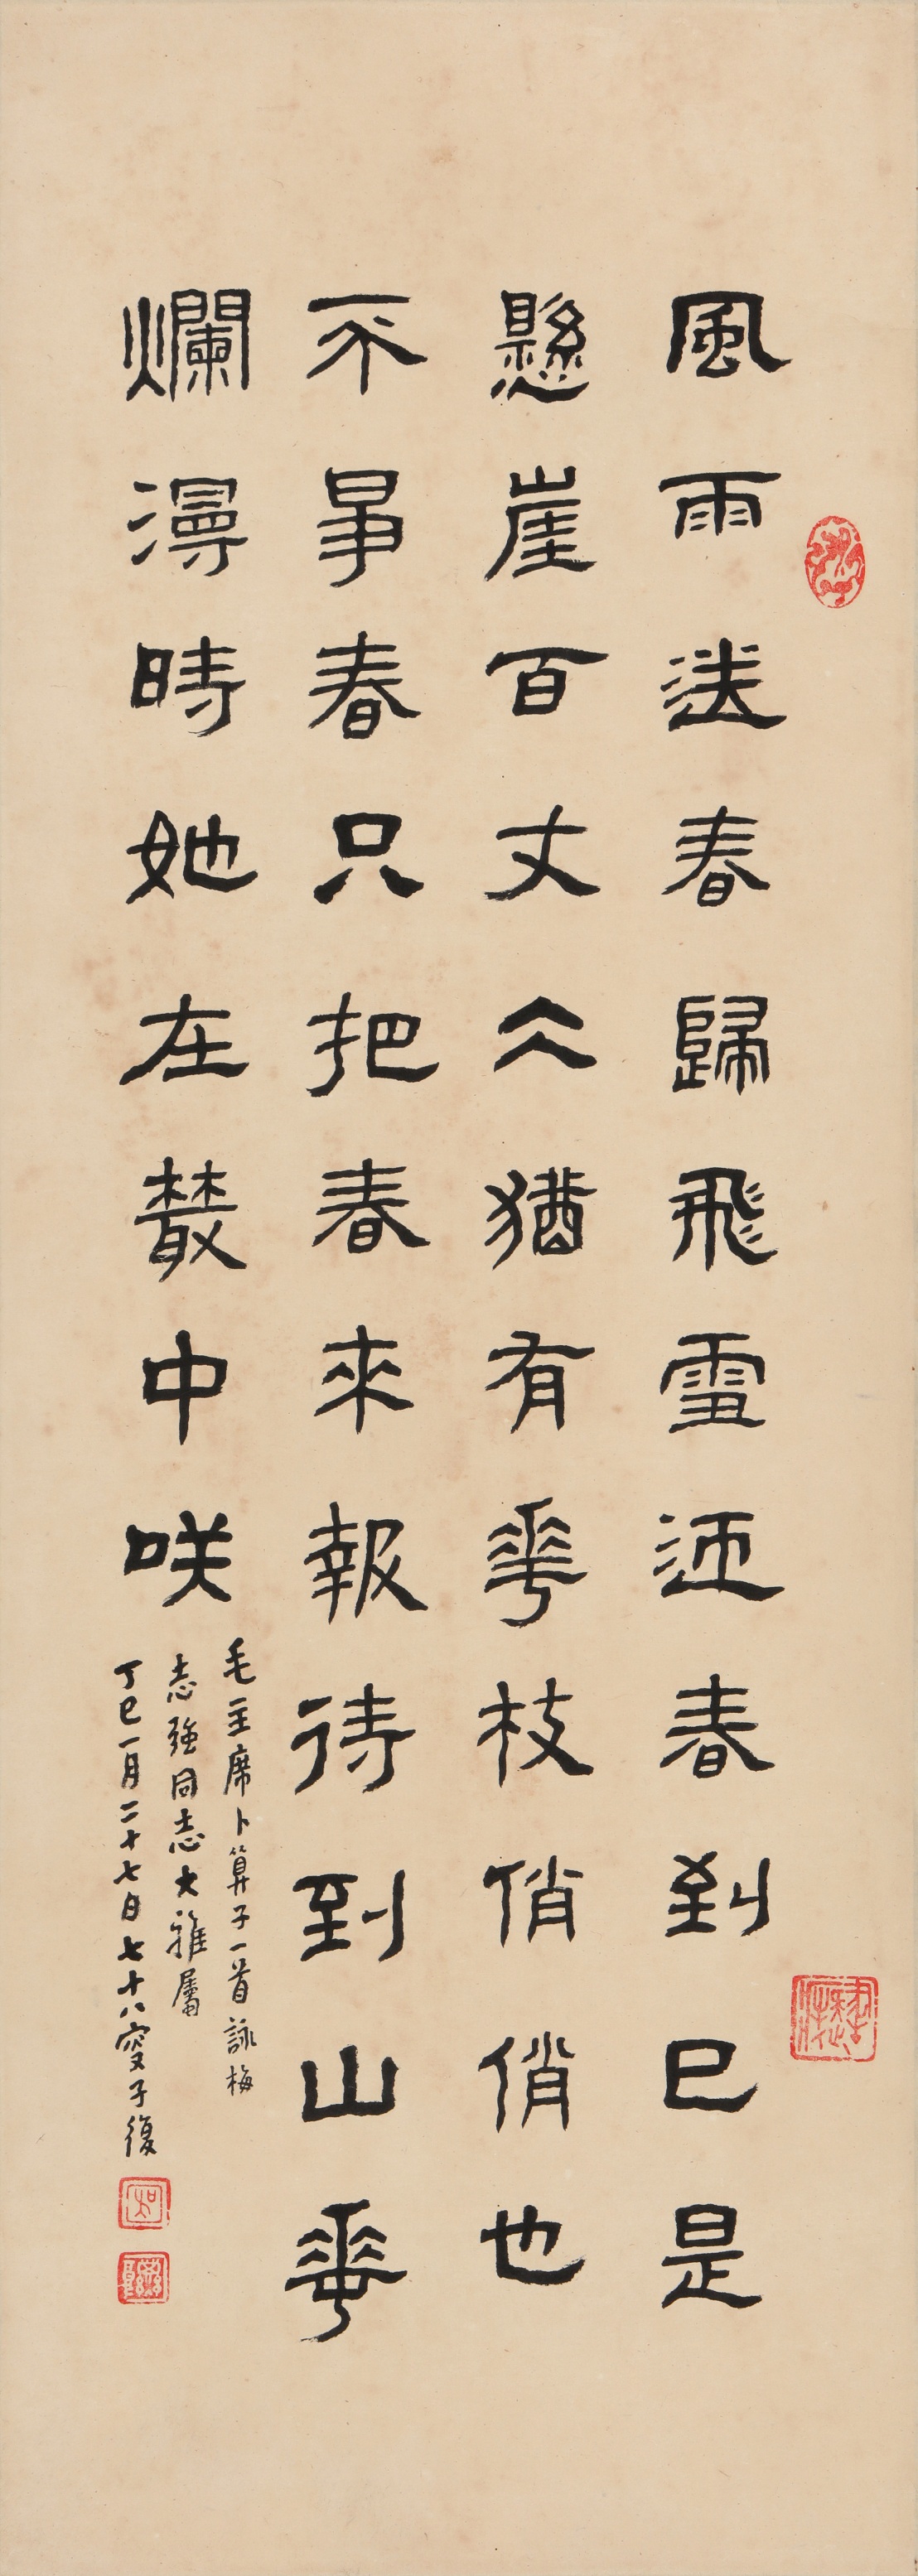 風雨送春歸飛雪迎春到已是
懸崖百丈仌猶有華枝俏俏也
不爭春只把春來報待到山華
爛漫時她在叢中咲
毛主席卜算子一首詠梅
志強同志大雅屬
丁巳一月二十七日七十八叟子復